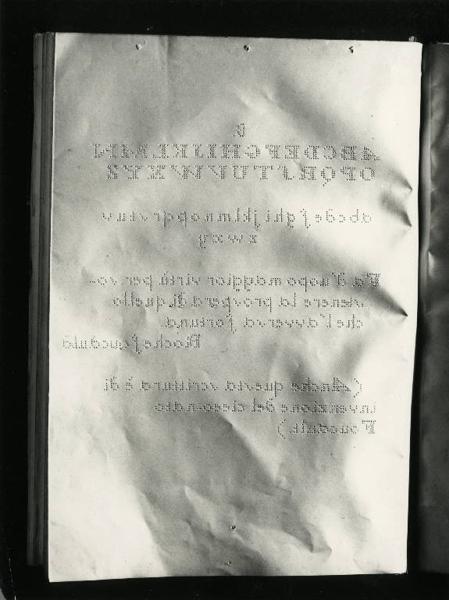 ABCDEFGHIJKLMN
abcdefghijklmnopqrstuv
Fa d'uopo maggior virtù per so-
stenere la prospera, di quello
che l'avversa fortuna.
Rochefoucauld
(Anche questa scrittura è di
invenzione del cieco-nato
Foucault.)